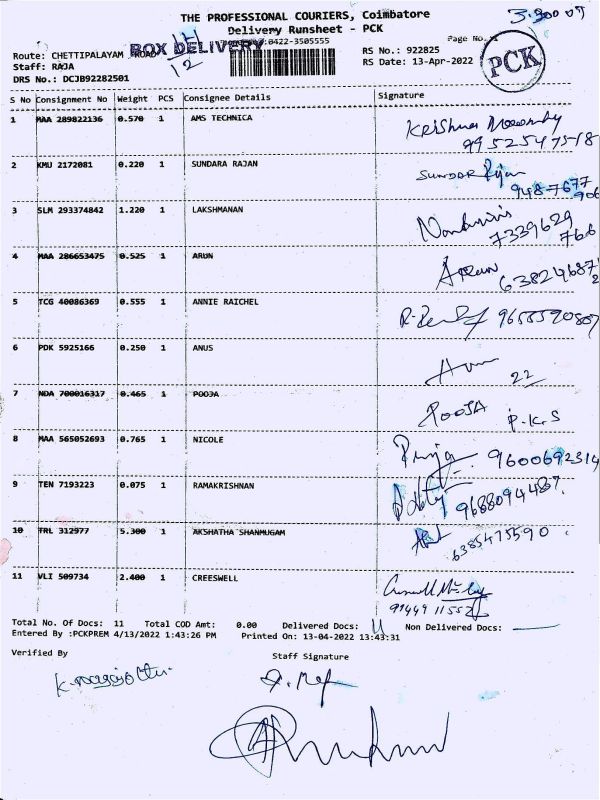 THE PROFESSIONAL COURIERS, Coimbatore
Delivery Runsheet - PCK
BOX DELIVERY
0422-3505555
Page No.
12
PCK
Route: CHETTIPALAYAM ROAD
RS No.: 922825
Staff: RAJA
RS Date: 13-Apr-2022
DRS No.: DCJB92282501
S No Consignment No Weight PCS Consignee Details Signature
1 MAA 289822136 0.570 1 AMS TECHNICA
99525 47518
2 KMU 2172081 0.220 1 SUNDARA RAJAN
SUNDAR Rajan
3 SLM 293374842 1.220 1 LAKSHMANAN
7339629
766
4 MAA 286653475 0.525 1 ARUN
Arun
5 TCG 40086369 0.555 1 ANNIE RAICHEL
6 PDK 5925166 0.250 1 ANUS
22
7 NDA 700016317 0.465 1 POOJA
POOJA P.K.S
8 MAA 565052693 0.765 1 NICOLE
9600692314
9 TEN 7193223 0.075 1 RAMAKRISHNAN
9688094487.
10 TRL 312977 5.300 1 AKSHATHA SHANMUGAM
6385475590
11 VLI 509734 2.400 1 CREESWELL
Total No. Of Docs: 11 Total COD Amt: 0.00 Delivered Docs: 11 Non Delivered Docs:
Entered By :PCKPREM 4/13/2022 1:43:26 PM Printed On: 13-04-2022 13:43:31
Verified By Staff Signature